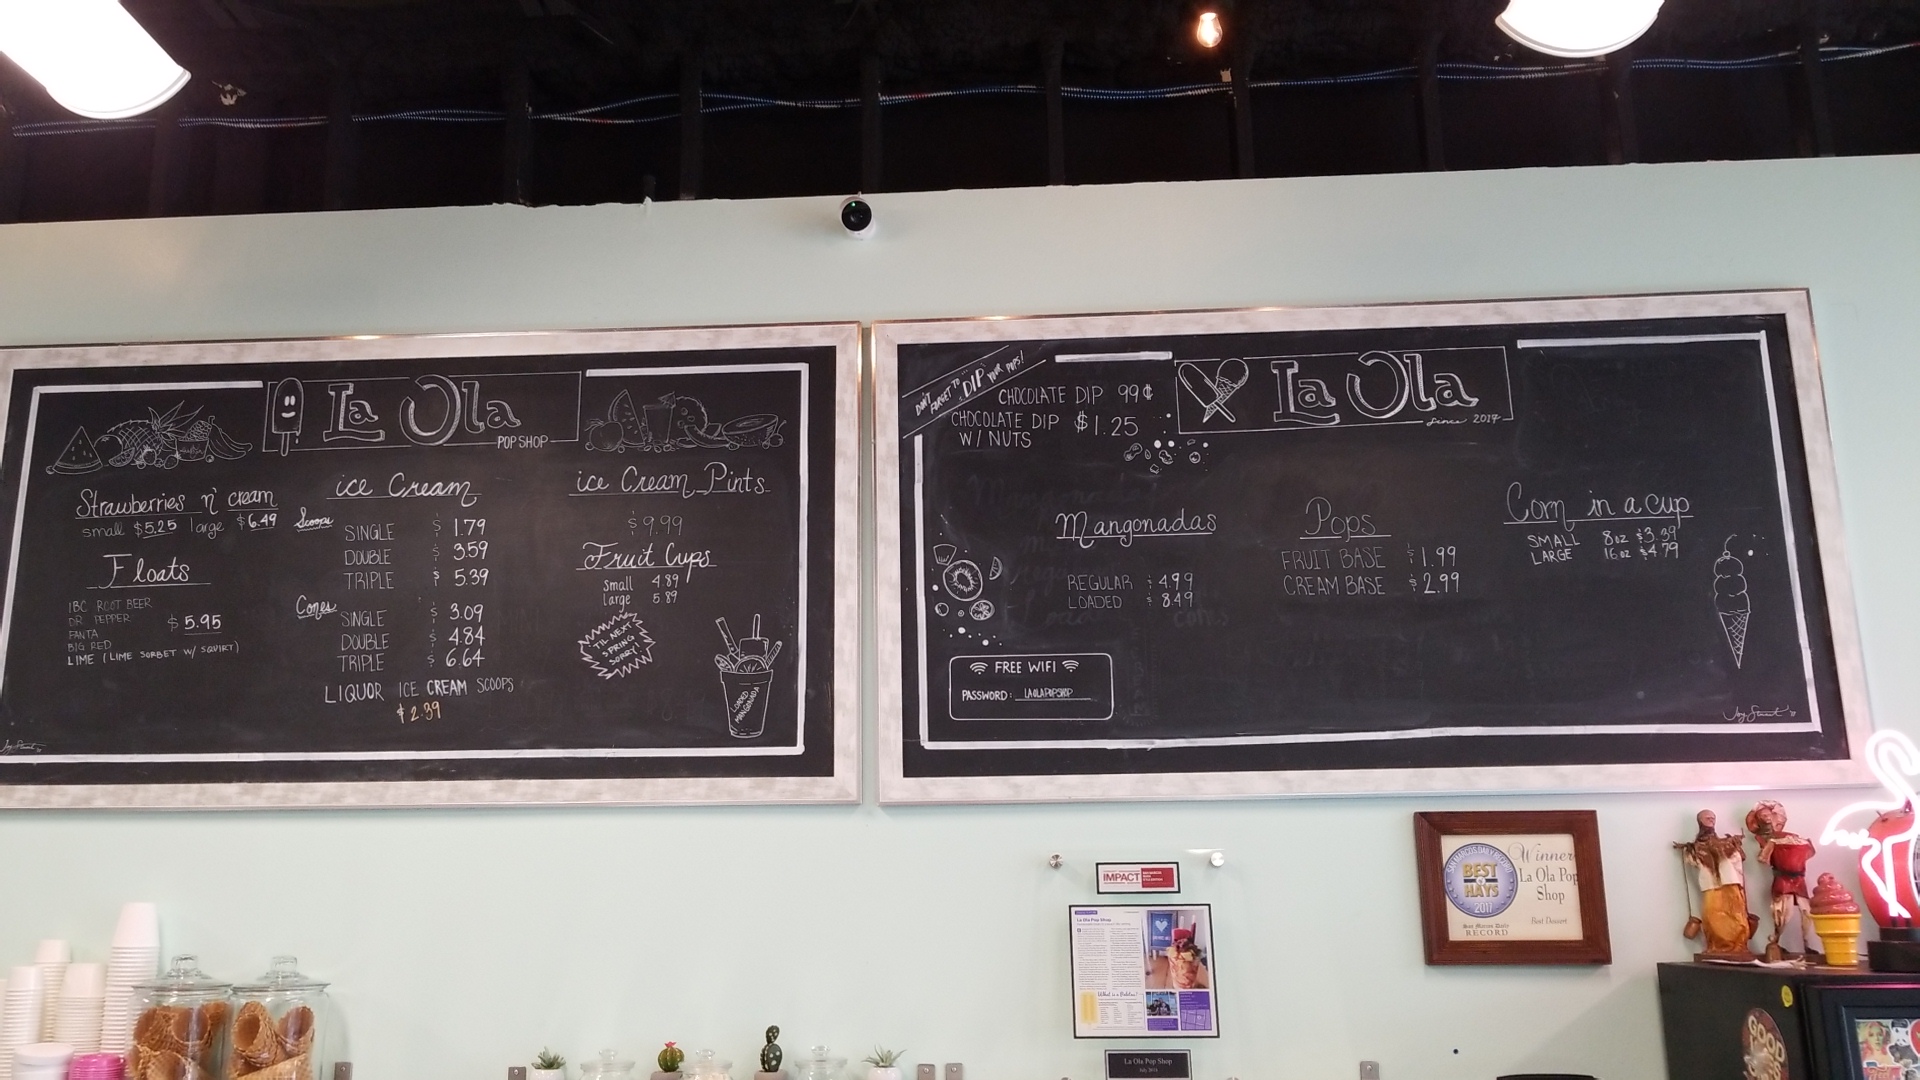 La Ola
POP SHOP
Strawberries n' cream
small $5.25 large $6.49
Floats
IBC ROOT BEER
DR PEPPER
FANTA
BIG RED
LIME (LIME SORBET W/ SQUIRT)
$5.95
ice Cream
Scoops
SINGLE $ 1.79
DOUBLE $ 3.59
TRIPLE $ 5.39
Cones
SINGLE $ 3.09
DOUBLE $ 4.84
TRIPLE $ 6.64
LIQUOR ICE CREAM SCOOPS
$2.39
ice Cream Pints
$9.99
Fruit Cups
small 4.89
large 5.89
'TIL NEXT
SPRING
SORRY!
LOADED
MANGONADA
DON'T
FORGET TO
"DIP"
YOUR POPS!
CHOCOLATE DIP 99¢
CHOCOLATE DIP $1.25
W/ NUTS
La Ola
Since 2014
Mangonadas
REGULAR $4.99
LOADED $8.49
Pops
FRUIT BASE $1.99
CREAM BASE $2.99
Corn in a cup
SMALL 8oz $3.39
LARGE 16oz $4.79
FREE WIFI
PASSWORD: LAOLAPOPSHOP
IMPACT
La Ola Pop Shop
What is a Paleta?
La Ola Pop Shop
SAN MARCOS DAILY RECORD
BEST
OF
HAYS
2017
Winner
La Ola Pop
Shop
Best Dessert
San Marcos Daily
RECORD
GOOD